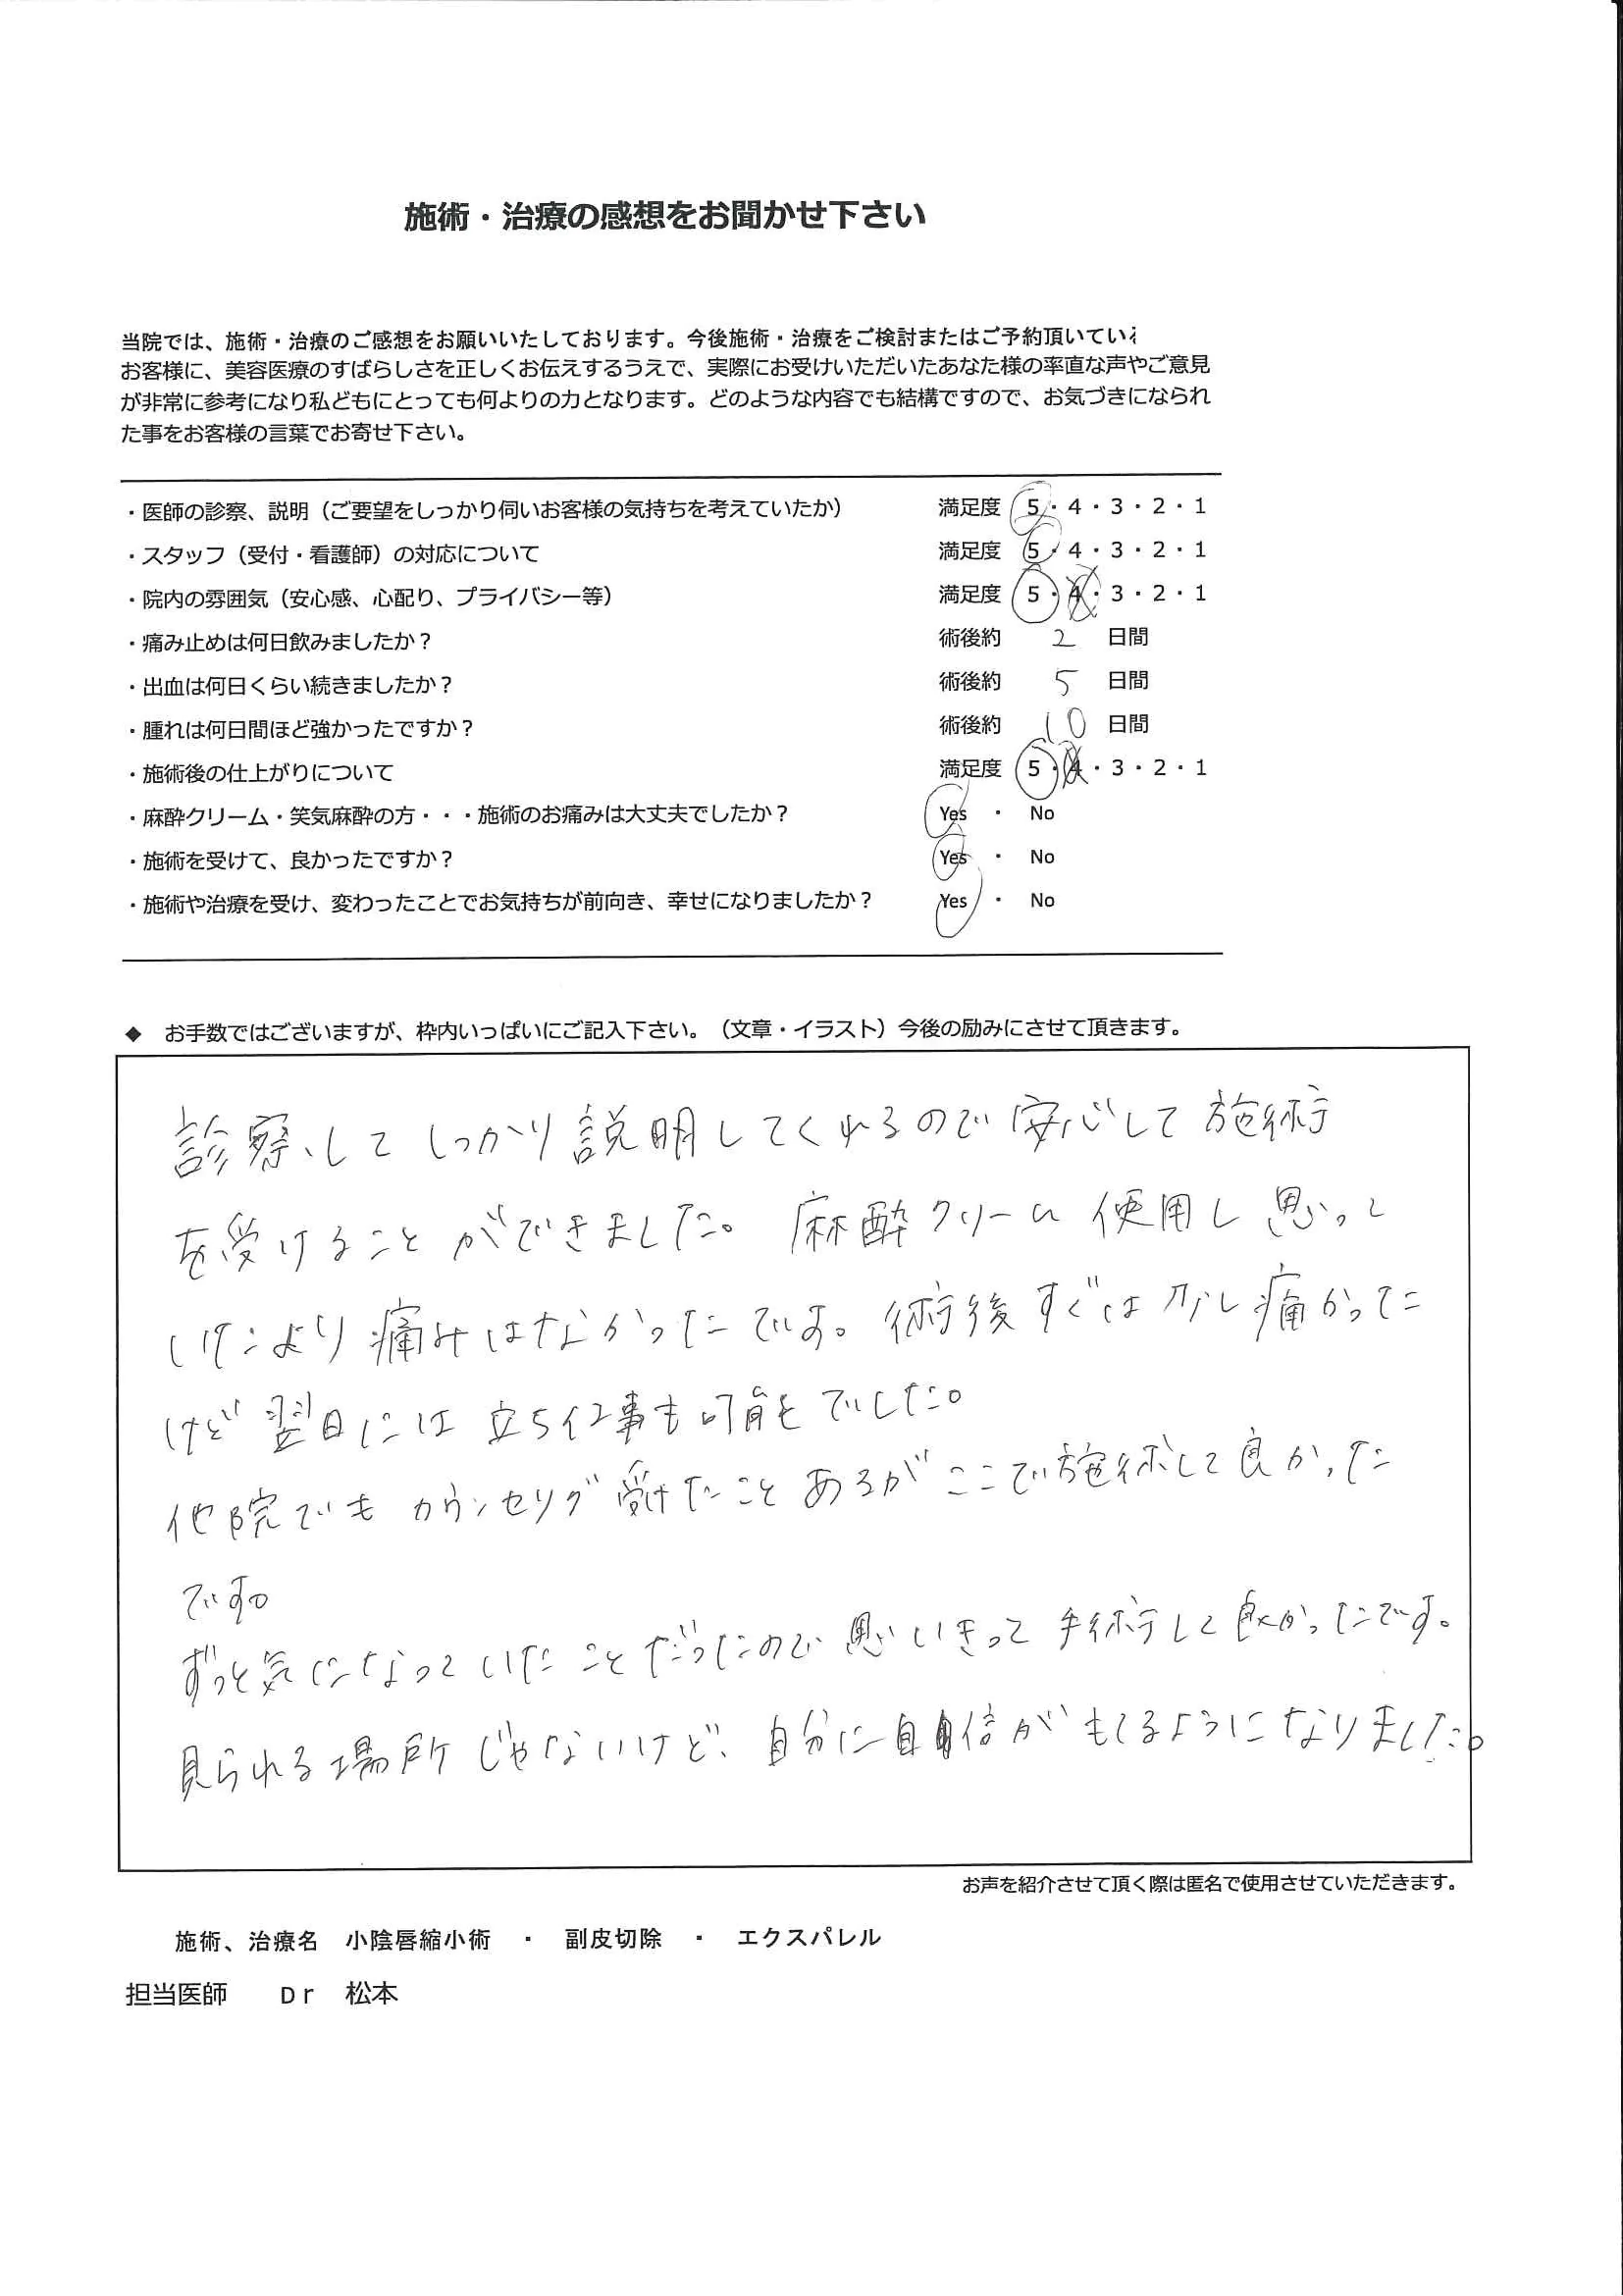 施術・治療の感想をお聞かせ下さい
当院では、施術・治療のご感想をお願いいたしております。今後施術・治療をご検討またはご予約頂いている
お客様に、美容医療のすばらしさを正しくお伝えするうえで、実際にお受けいただいたあなた様の率直な声やご意見
が非常に参考になり私どもにとっても何よりの力となります。どのような内容でも結構ですので、お気づきになられ
た事をお客様の言葉でお寄せ下さい。
・医師の診察、説明（ご要望をしっかり伺いお客様の気持ちを考えていたか） 満足度 5・4・3・2・1
・スタッフ（受付・看護師）の対応について 満足度 5・4・3・2・1
・院内の雰囲気（安心感、心配り、プライバシー等） 満足度 5・4・3・2・1
・痛み止めは何日飲みましたか？ 術後約 2 日間
・出血は何日くらい続きましたか？ 術後約 5 日間
・腫れは何日間ほど強かったですか？ 術後約 10 日間
・施術後の仕上がりについて 満足度 5・4・3・2・1
・麻酔クリーム・笑気麻酔の方・・・施術のお痛みは大丈夫でしたか？ Yes ・ No
・施術を受けて、良かったですか？ Yes ・ No
・施術や治療を受け、変わったことでお気持ちが前向き、幸せになりましたか？ Yes ・ No
◆ お手数ではございますが、枠内いっぱいにご記入下さい。（文章・イラスト）今後の励みにさせて頂きます。
診察、してしっかり説明してくれるので安心して施術
を受けることができました。麻酔クリーム使用し思って
いたより痛みはなかったです。術後すぐは少し痛かった
けど翌日には立ち仕事も可能でした。
他院でもカウンセリグ受けたことあるがここで施術して良かった
です。
ずっと気になっていたことだったので思いきって手術して良かったです。
見られる場所じゃないけど、自分に自信がもてるようになりました。
お声を紹介させて頂く際は匿名で使用させていただきます。
施術、治療名 小陰唇縮小術 ・ 副皮切除 ・ エクスパレル
担当医師 Dr 松本